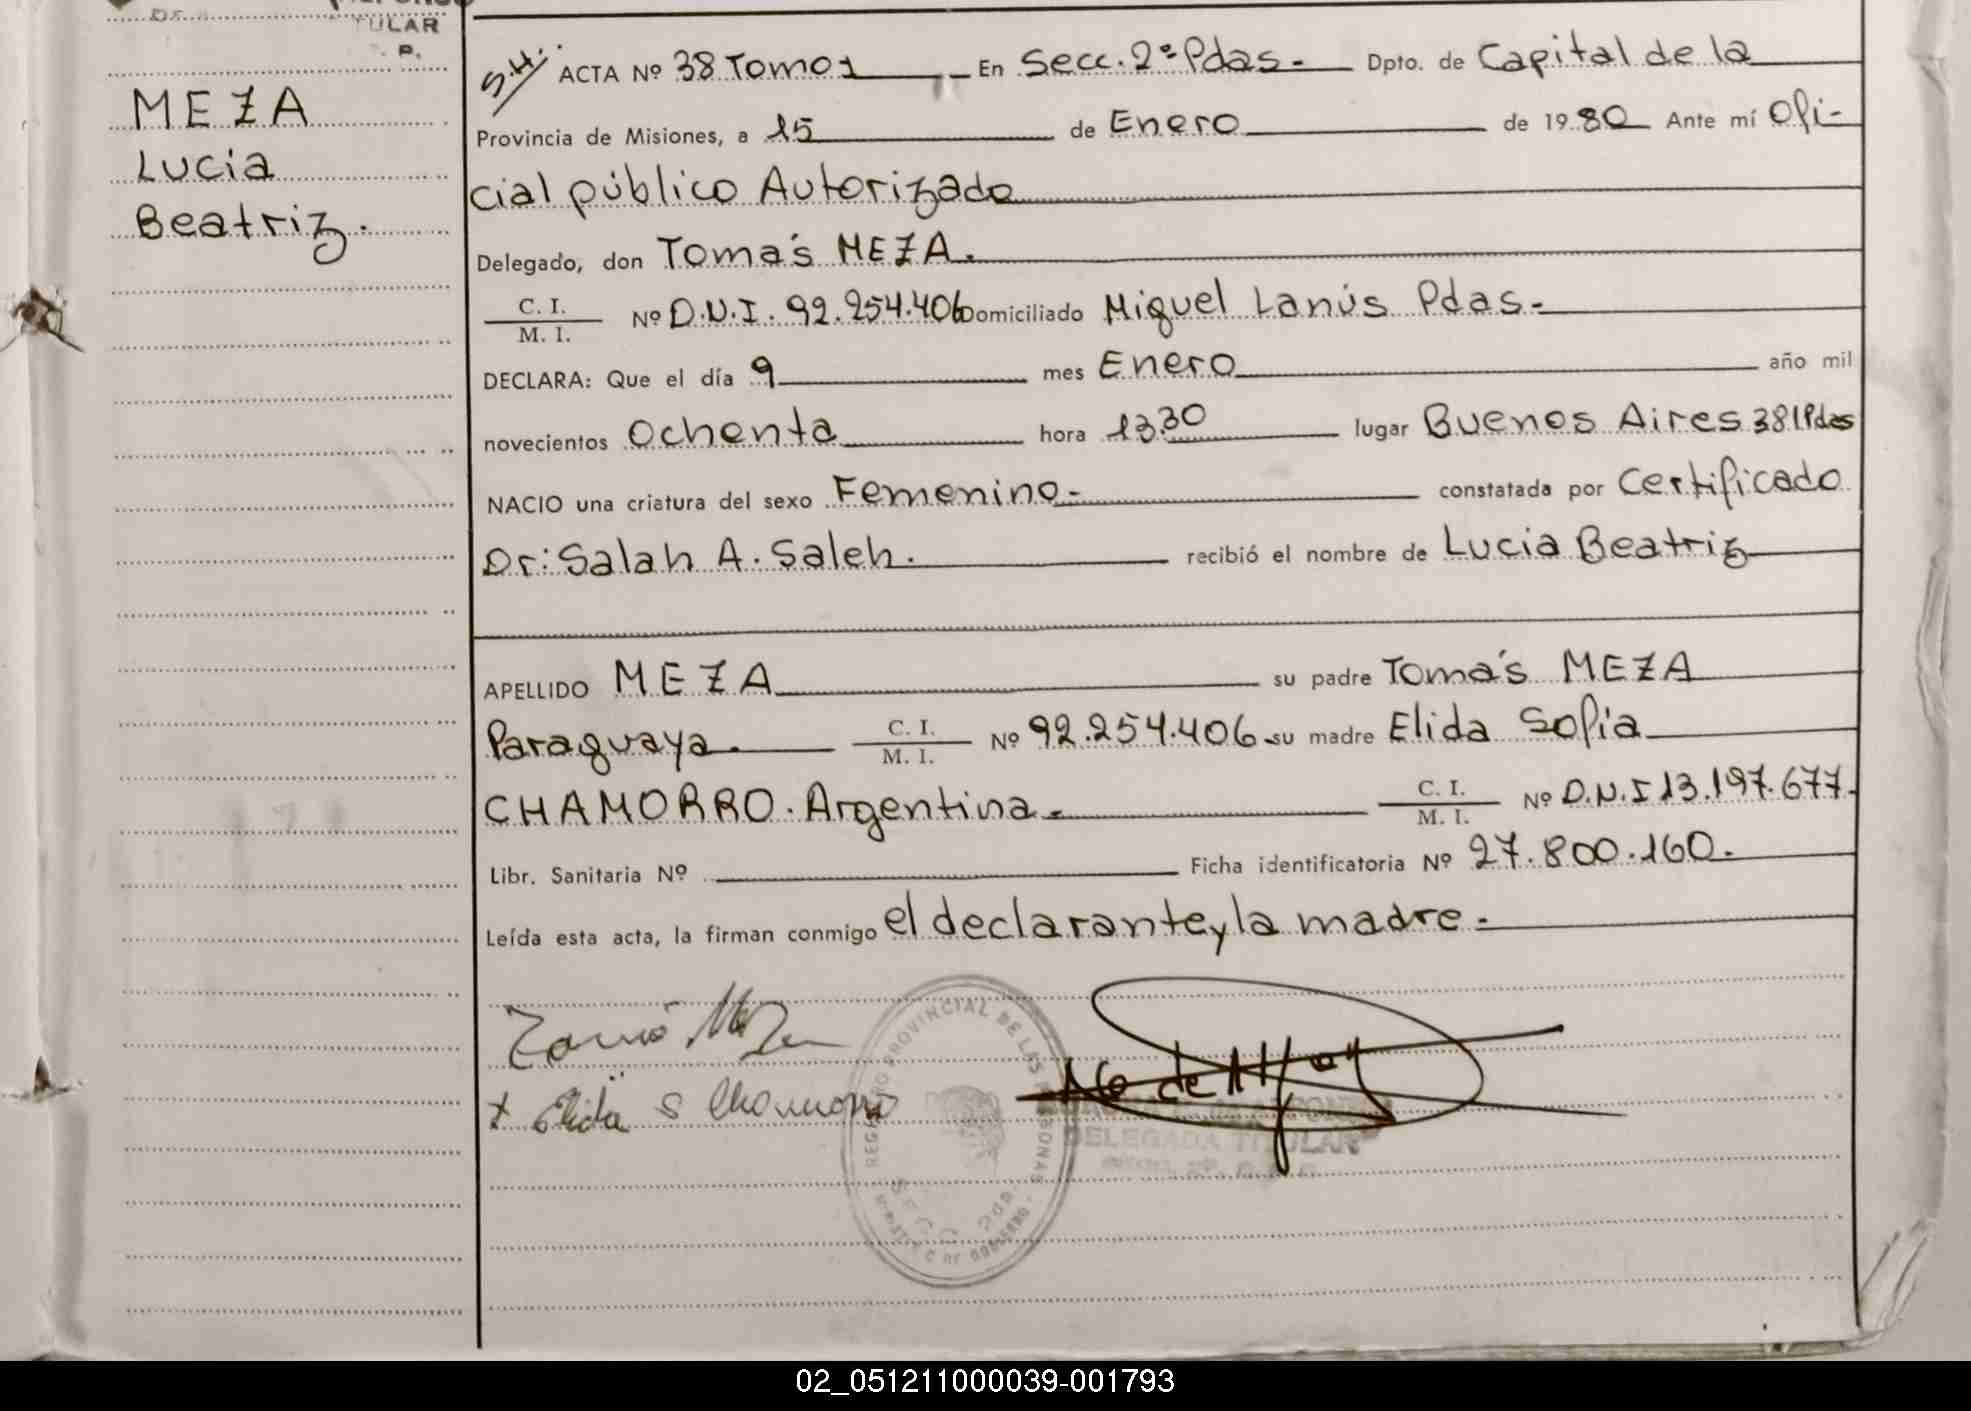 TULAR
P.
MEZA
Lucia
Beatriz.
S.H. ACTA Nº 38 Tomo 1 En Secc. 2ª Pdas.- Dpto. de Capital de la
Provincia de Misiones, a 15 de Enero de 1980 Ante mí Ofi-
cial público Autorizado
Delegado, don Tomás MEZA.
C. I.
M. I. Nº D.N.I. 92.254.406 Domiciliado Miguel Lanús Pdas.-
DECLARA: Que el día 9 mes Enero año mil
novecientos Ochenta hora 13.30 lugar Buenos Aires 381 Pdas
NACIO una criatura del sexo Femenino.- constatada por Certificado
Dr: Salah A. Saleh. recibió el nombre de Lucia Beatriz
APELLIDO MEZA su padre Tomás MEZA
Paraguaya. C. I. M. I. Nº 92.254.406 su madre Elida Sofia
CHAMORRO. Argentina.- C. I. M. I. Nº D.N.I 13.197.677.
Libr. Sanitaria Nº Ficha identificatoria Nº 27.800.160.
Leída esta acta, la firman conmigo el declarante y la madre.-
Tomás Meza
x Elida S Chamorro
REGISTRO PROVINCIAL DE LAS PERSONAS
DELEGADA TITULAR
02_051211000039-001793